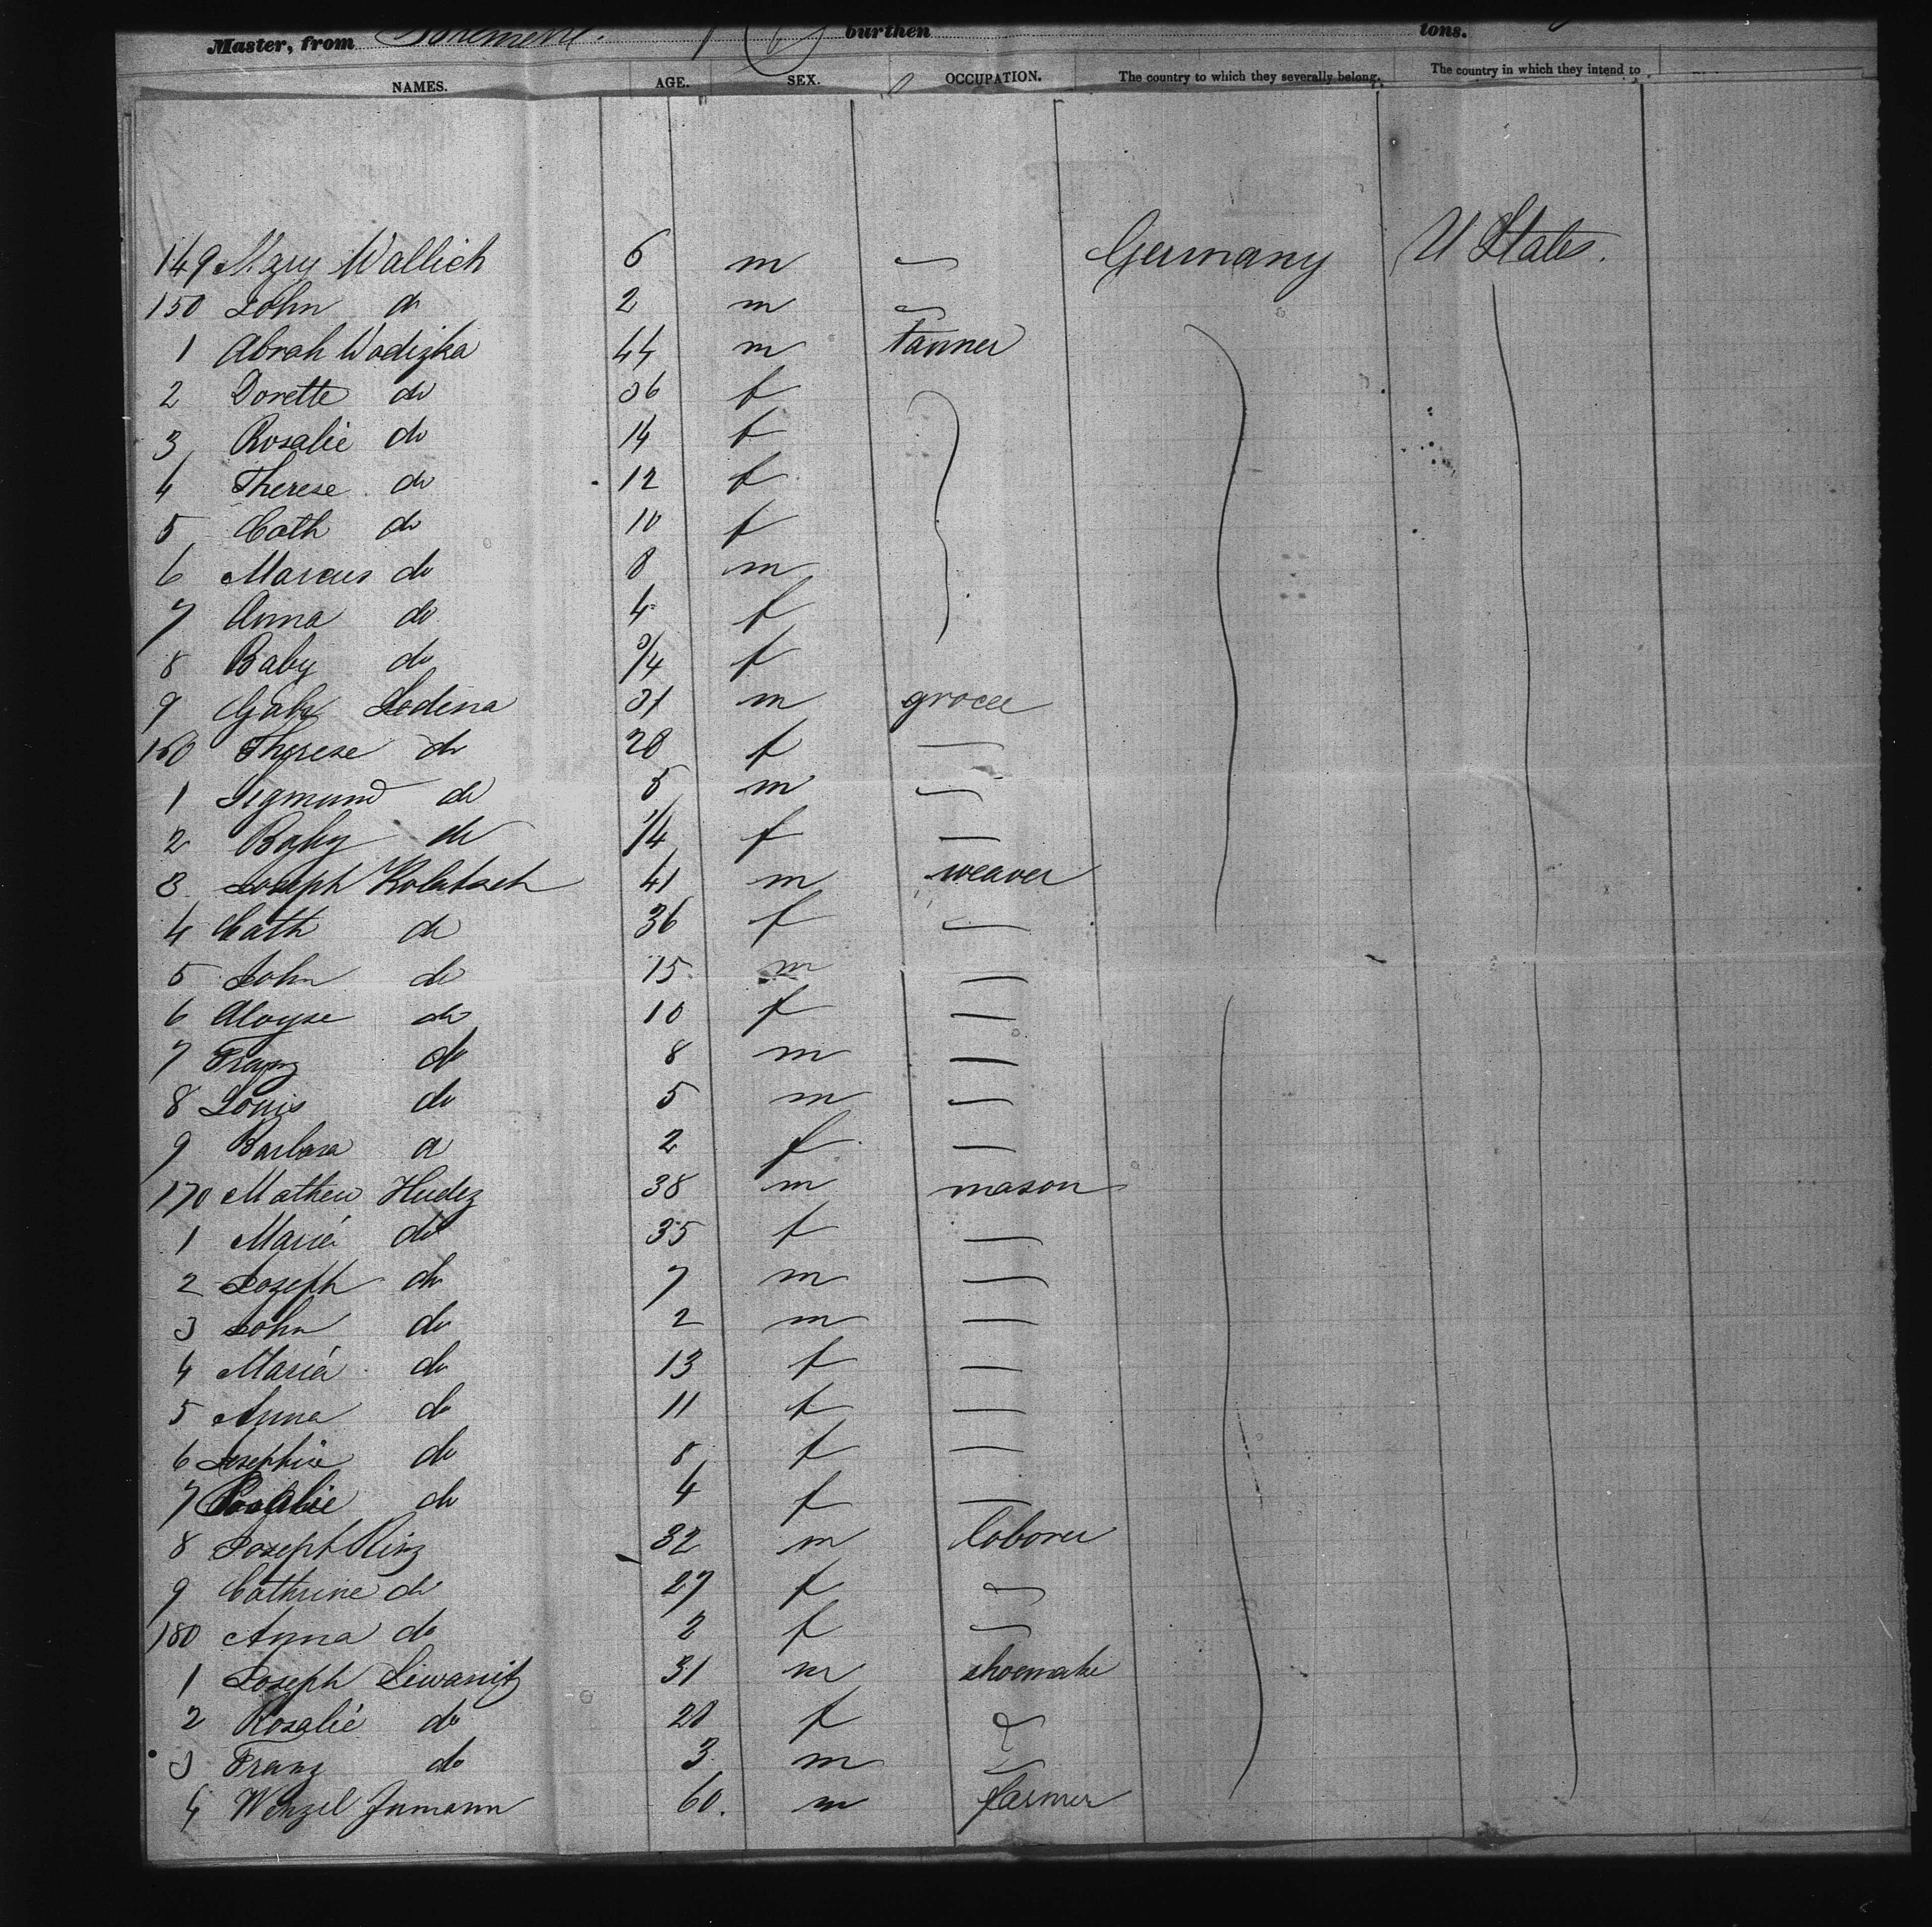 Master, from burthen tons.
NAMES. AGE. SEX. OCCUPATION. The country to which they severally belong. The country in which they intend to
149 Mary Wallich 6 m Germany U States.
150 John do 2 m
1 Abrah Wodizka 44 m tanner
2 Dorette do 36 f
3 Rosalie do 14 f
4 Therese do 12 f
5 Cath do 10 f
6 Marcus do 8 m
7 Anna do 4 f
8 Baby do 3/4 f
9 Gabr Lodena 31 m grocer
160 Therese do 28 f —
1 Sigmund do 5 m —
2 Baby do 1/4 f —
3 Joseph Kolatsch 41 m weaver
4 Cath do 36 f —
5 John do 15 m —
6 Aloyse do 10 f —
7 Franz do 8 m —
8 Louis do 5 m —
9 Barbara do 2 f —
170 Mathew Hudez 38 m mason
1 Maria do 35 f —
2 Joseph do 7 m —
3 John do 2 m —
4 Maria do 13 f —
5 Anna do 11 f —
6 Josephine do 8 f —
7 Rosalie do 4 f —
8 Joseph Ring 32 m laborer
9 Cathrine do 27 f
180 Anna do 2 f
1 Joseph Siwanitz 31 m shoemake
2 Rosalie do 28 f
3 Franz do 3 m
4 Wenzel Jumann 60. m farmer